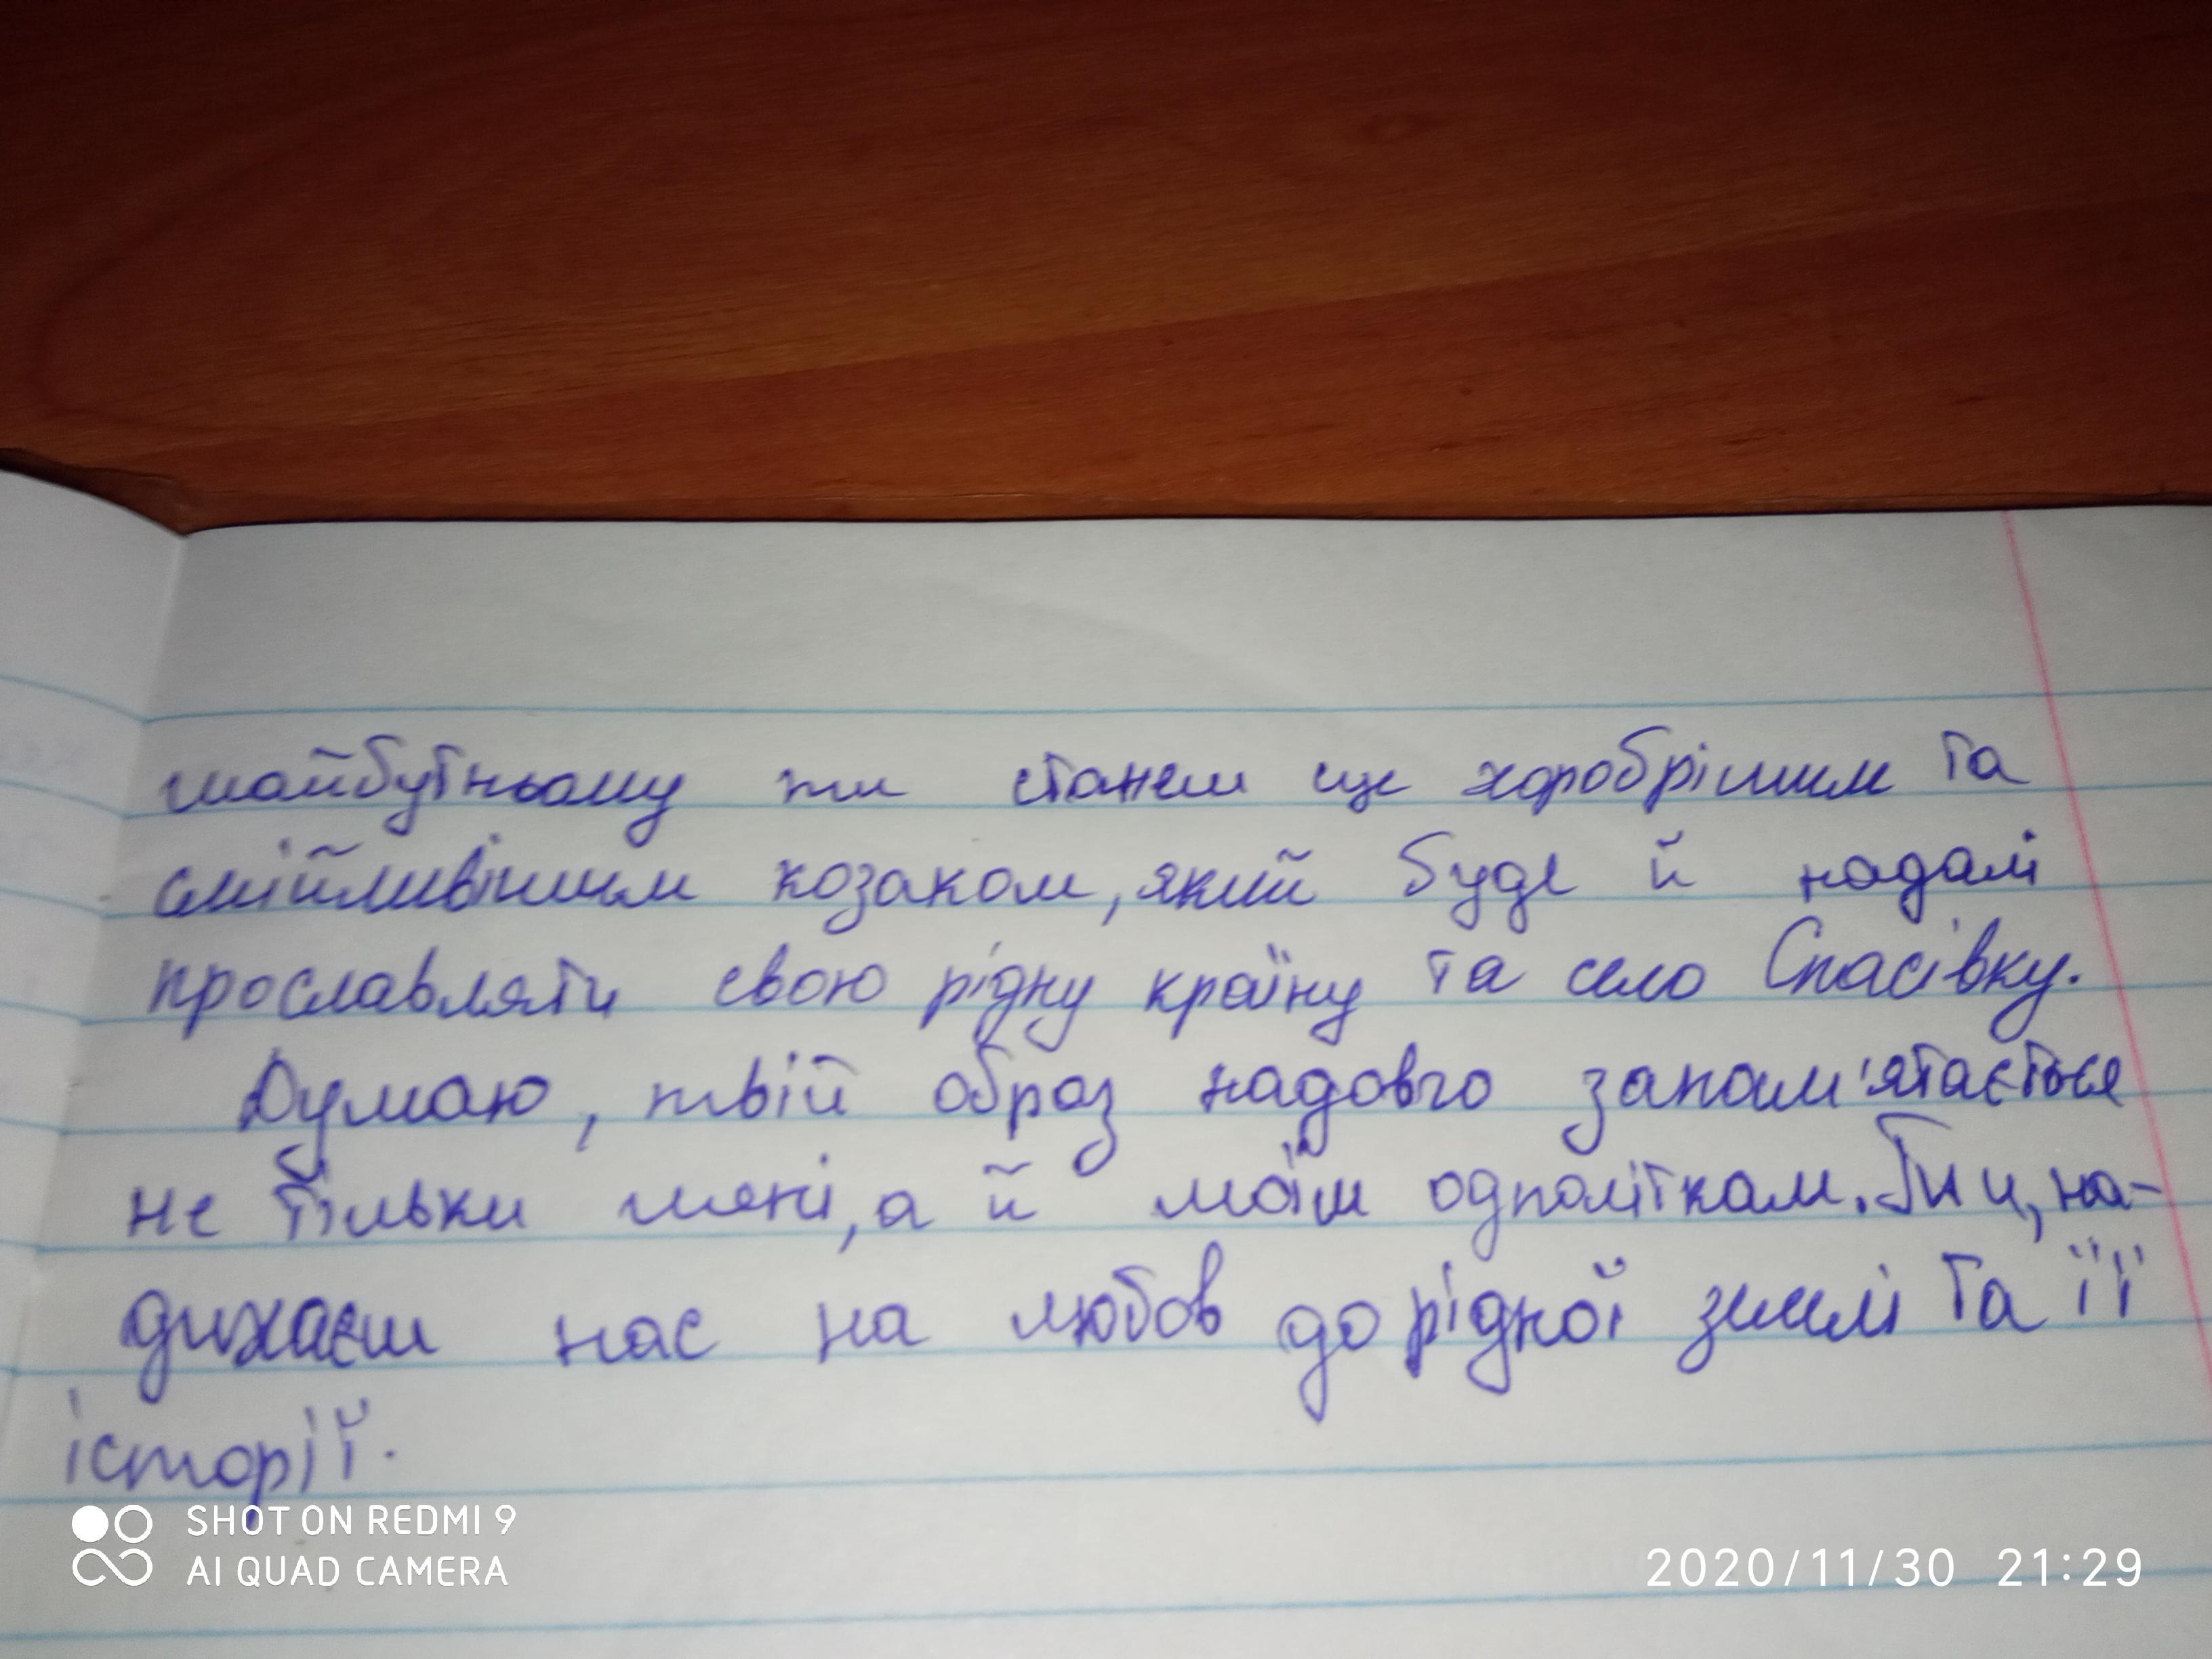 майбутньому ти станеш ще хоробрішим та
сміливішим козаком, який буде й надалі
прославляти свою рідну країну та село Спасівку.
Думаю, твій образ надовго запам'ятається
не тільки мені, а й моїм одноліткам. на-
дихаєш нас на любов до рідної землі та її
історії.
SHOT ON REDMI 9
AI QUAD CAMERA
2020/11/30 21:29